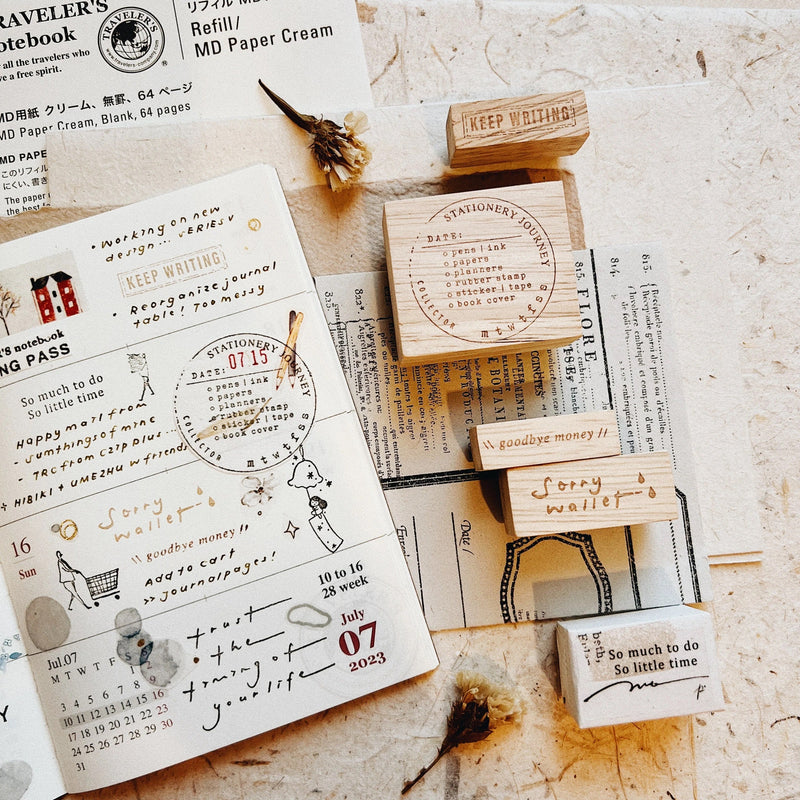 TRAVELER'S
notebook
for all the travelers who
have a free spirit.
TRAVELER'S
www.travelers-company.com
Refill/
MD Paper Cream
MD用紙 クリーム、無罫、64 ページ
MD Paper Cream, Blank, 64 pages
MD PAPE
このリフィル
にくい、書き
The paper
the best
• Working on new
design... SERIES V
KEEP WRITING
• Reorganize journal
table! Too messy
R'S notebook
NG PASS
So much to do
So little time
STATIONERY JOURNEY
DATE: 07 15
o pens | ink
o papers
o planners
o rubber stamp
o sticker | tape
o book cover
COLLECTOR
m t w t f s s
Happy mail from
- Sumthingsofmine
- TRC from C2TP plus...
+ HIBIKI + UMEZHU w friends
16
Sun
Sorry
wallet
\\ goodbye money //
Add to cart
>> Journal pages!
Jul.07
M T W T F
7 8 9
3 4 5 6
10 11 12 13 14 15 16
17 18 19 20 21 22 23
24 25 26 27 28 29 30
31
trust
the
timing of
your life
10 to 16
28 week
July
07
2023
KEEP WRITING
STATIONERY JOURNEY
DATE:
o pens | ink
o papers
o planners
o rubber stamp
o sticker | tape
o book cover
COLLECTOR
m t w t f s s
FLORE
BOTANI
814.
815.
Date /
\\ goodbye money //
Sorry
wallet
So much to do
So little time